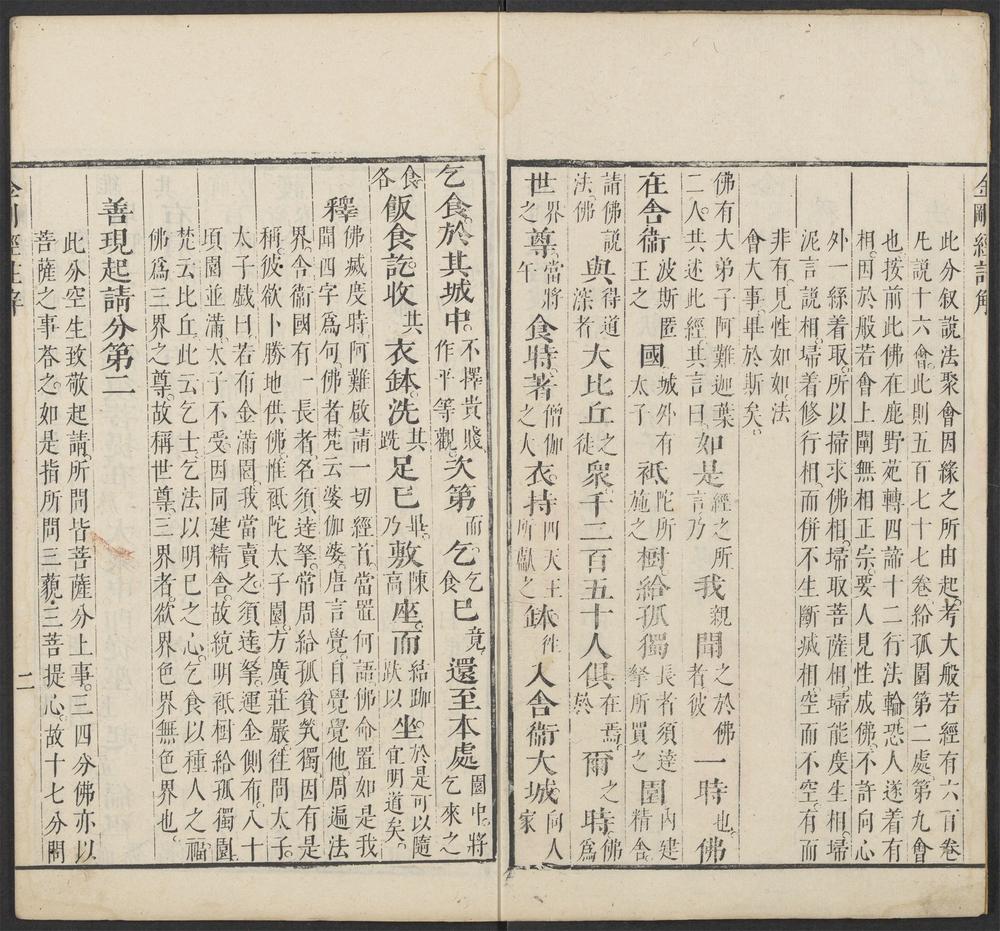 金剛經註解
此分叙說法聚會因緣之所由起。考大般若經有六百卷
先說十六會。此則五百七十七卷給孤園第二處第九會
也。按前此佛在鹿野苑轉四諦十二行法輪。恐人遂着有
相。因於般若會上闡無相正宗。要人見性成佛。不許向心
外一絲着取。所以掃求佛相。掃取菩薩相。掃能度生相。掃
泥言說相。掃着修行相。而併不生斷滅相。空而不空。有而
非有。見性如如。法
會大事。畢於斯矣。
佛有大弟子阿難迦葉二人。共述此經。其言曰。如是經之所言乃我親聞之於佛者彼一時也。佛
在舍衞波斯匿王之國城外有太子祇陀所施之樹給孤獨長者須達拏所買之園內建精舍。
請佛說法。佛與得道深者大比丘之徒衆千二百五十人俱在焉。於爾之時。佛爲
世界之尊。當將午食時。著僧伽之大衣。持四天王所獻之鉢徃入舍衞大城向人家
乞食。於其城中。不擇貴賤作平等觀。次第而乞乞食已竟。還至本處園中。將乞來之
食各飯食訖。收其衣鉢。洗其跣足已畢。乃敷陳高座而結跏趺以坐於是可以隨宜明道矣。
釋佛滅度時。阿難啟請一切經首。當置何語。佛命置如是我
聞四字爲句。佛者梵云婆伽婆。唐言覺。自覺覺他。周遍法
界。舍衞國有一長者名須達拏。常周給孤貧㷀獨。因有是
稱。彼欲卜勝地供佛。惟祇陀太子園。方廣莊嚴。徃問太子。
太子戲曰。若有金滿園。我當賣之。須達拏。運金側布。八十
項園並滿。太子不受。因同建精舍。故統明祇樹給孤獨園。
梵云比丘。此云乞士。乞法以明巳之心。乞食以種人之福
佛爲三界之尊。故稱世尊。三界者。欲界色界無色界也。
善現起請分第二
此分空生致敬起請。所問皆菩薩分上事。三四分佛亦以
菩薩之事荅之。如是指所問三藐三菩提心。故十七分問
金剛經註解
二